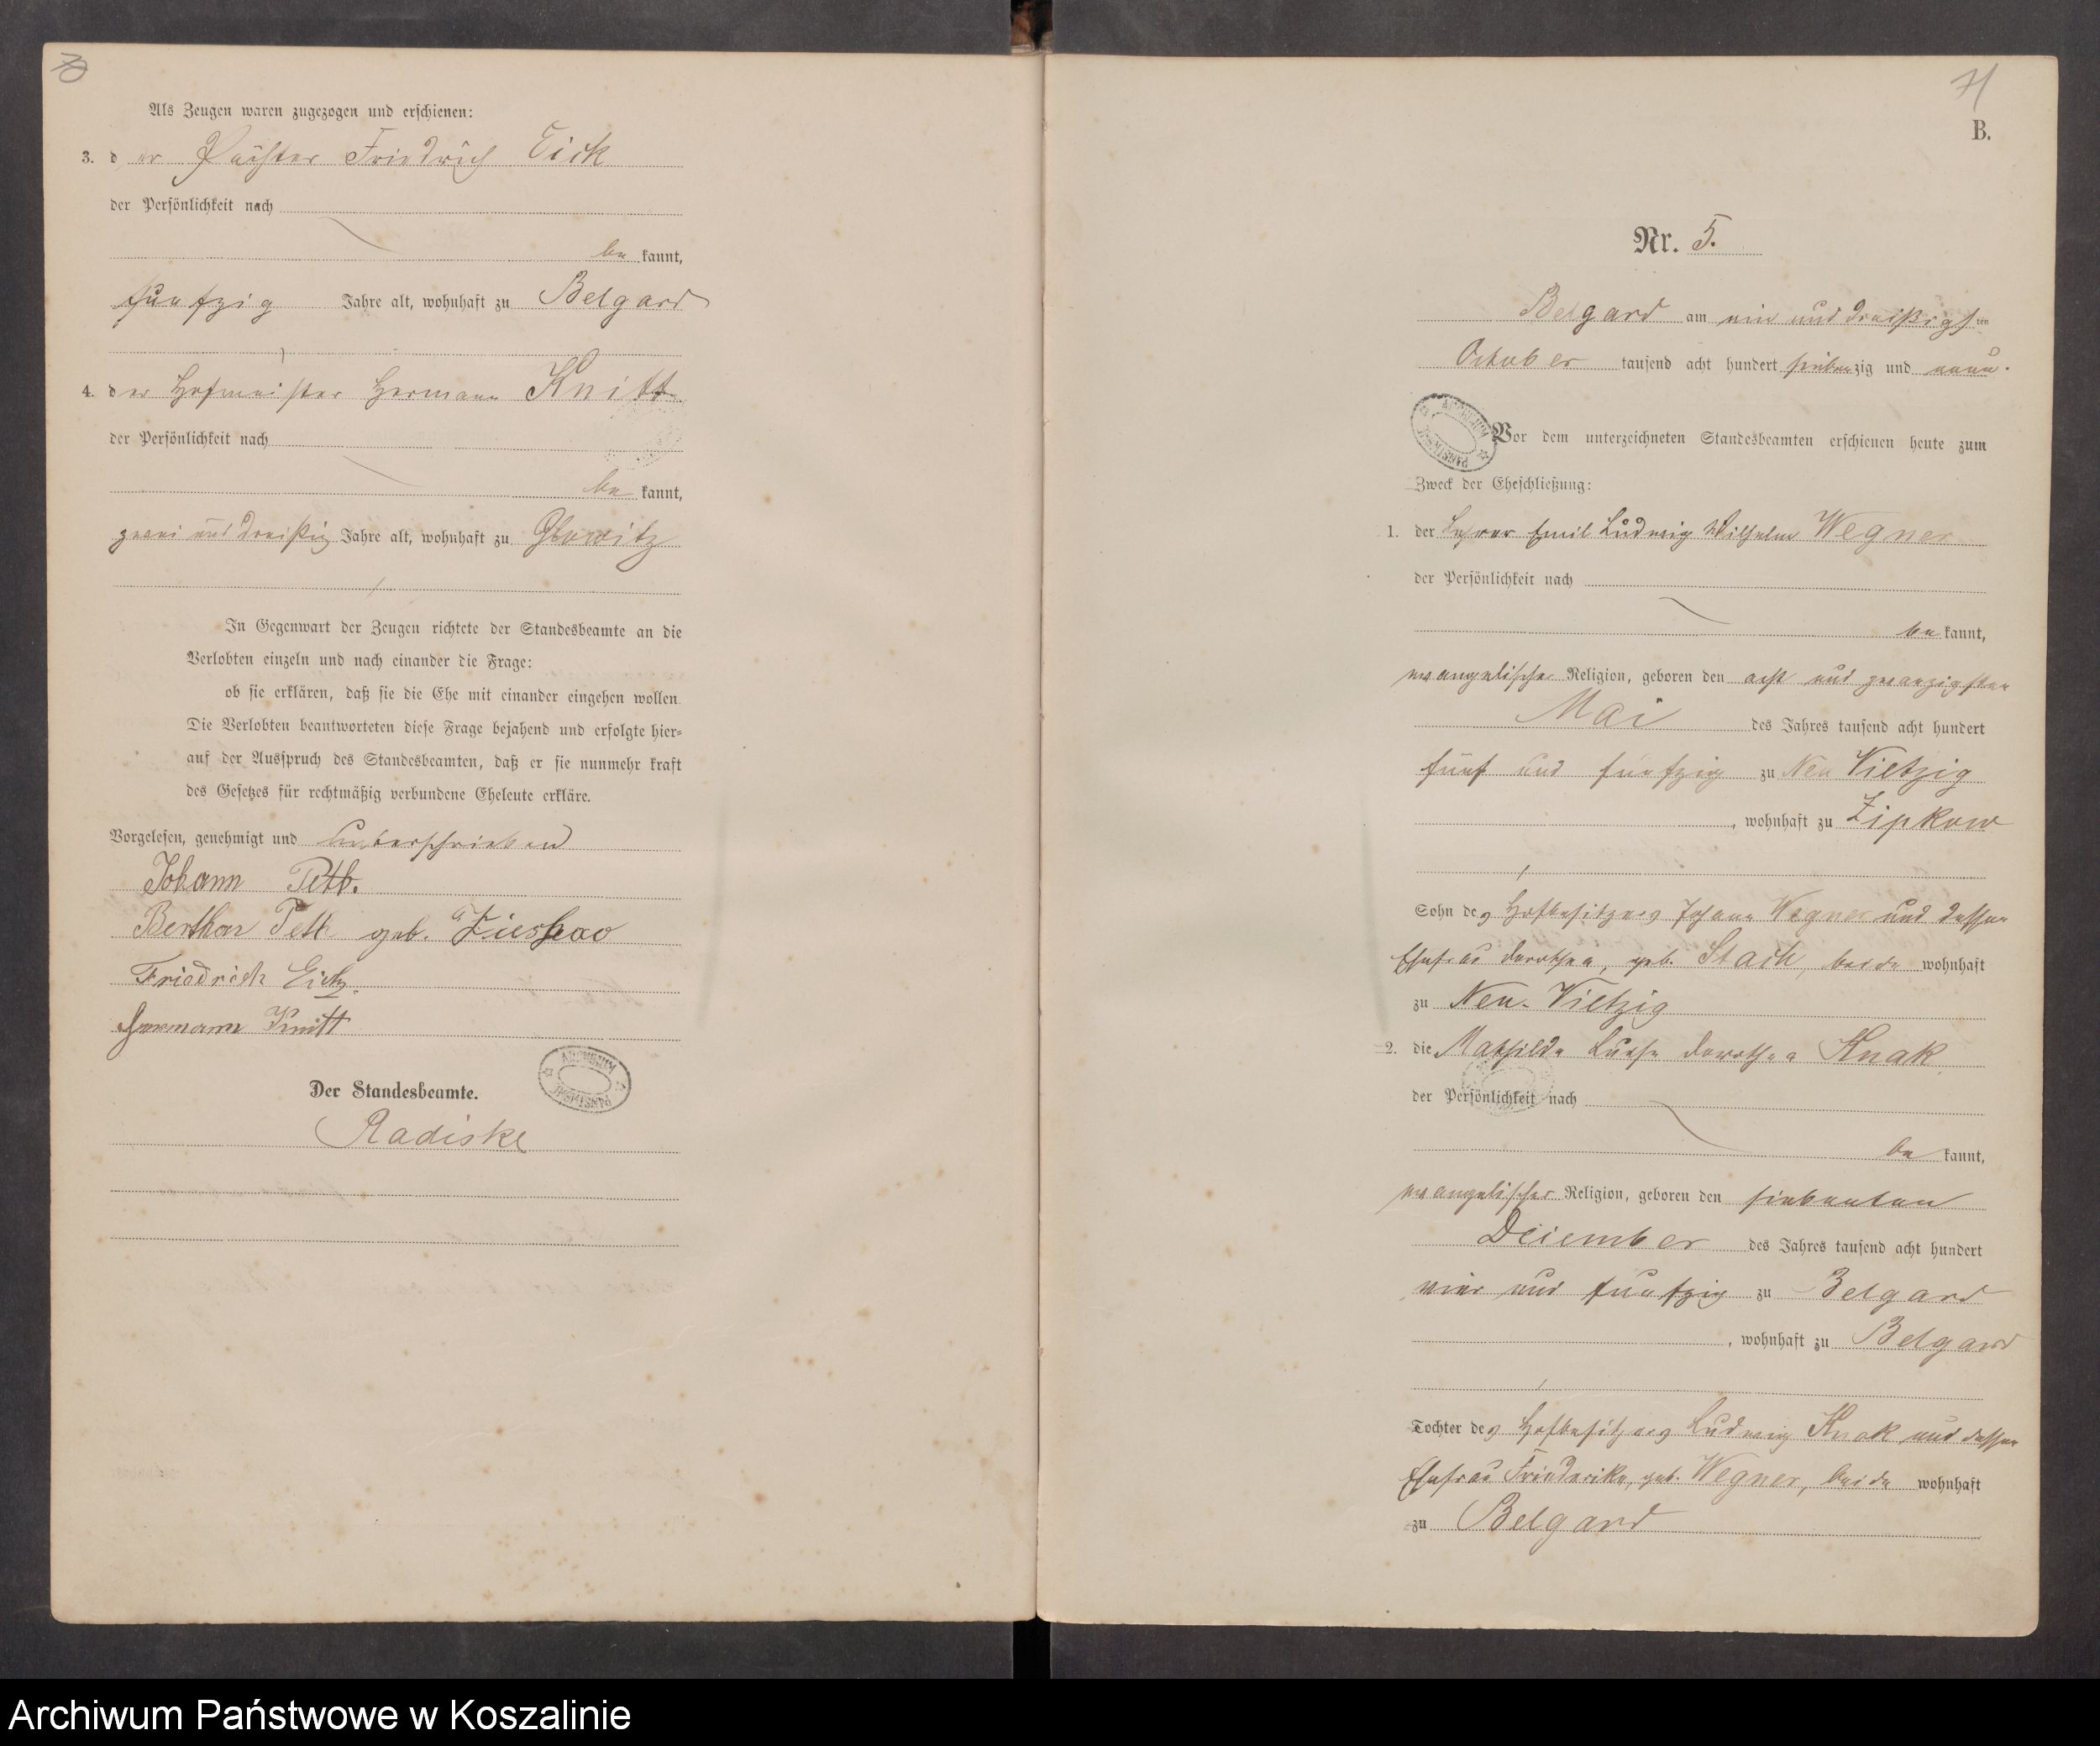 70
Als Zeugen waren zugezogen und erschienen:
3. der Pächter Friedrich Eick
der Persönlichkeit nach
be kannt,
funfzig Jahre alt, wohnhaft zu Belgard
4. der Hofmeister Hermann Knitt
der Persönlichkeit nach
be kannt,
zwei und dreißig Jahre alt, wohnhaft zu Glowitz
In Gegenwart der Zeugen richtete der Standesbeamte an die
Verlobten einzeln und nach einander die Frage:
ob sie erklären, daß sie die Ehe mit einander eingehen wollen.
Die Verlobten beantworteten diese Frage bejahend und erfolgte hier-
auf der Ausspruch des Standesbeamten, daß er sie nunmehr kraft
des Gesetzes für rechtmäßig verbundene Eheleute erkläre.
Vorgelesen, genehmigt und unterschrieben
Johann
geb.
Friedrich
Hermann Knitt
ARCHIWUM PAŃSTWOWE
Der Standesbeamte.
Radiske
71
B.
Nr. 5.
Belgard am ein und dreißigsten
October tausend acht hundert siebenzig und neun.
ARCHIWUM PAŃSTWOWE
Vor dem unterzeichneten Standesbeamten erschienen heute zum
Zweck der Eheschließung:
1. der Lehrer Emil Ludwig Wilhelm Wegner
der Persönlichkeit nach
be kannt,
evangelischer Religion, geboren den acht und zwanzigsten
Mai des Jahres tausend acht hundert
fünf und funfzig zu Neu Vietzig
, wohnhaft zu Zipkow
Sohn des Hofbesitzers Johann Wegner und dessen
Ehefrau Dorothea, geb. Stach, beide wohnhaft
zu Neu-Vietzig
2. die Mathilde Luise Dorothea Knak
der Persönlichkeit nach
be kannt,
evangelischer Religion, geboren den siebenten
Dezember des Jahres tausend acht hundert
vier und funfzig zu Belgard
, wohnhaft zu Belgard
Tochter des Hofbesitzers Ludwig Knak und dessen
Ehefrau Friederike, geb. Wegner, beide wohnhaft
zu Belgard
Archiwum Państwowe w Koszalinie